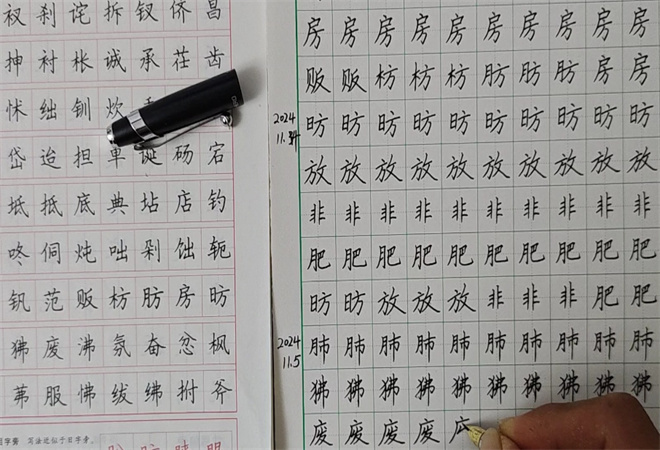 衩刹诧拆钗侪昌
抻衬枨诚承茌齿
怵绌钏炊
岱迨担单诞砀宕
坻抵底典坫店钓
咚侗炖咄剁饳轭
钒范贩枋肪房昉
狒废沸氛奋忿枫
芾服怫绂绋拊斧
写法近似于日字旁。
房房房房房房房房房房
贩贩枋枋枋肪肪肪房房
2024
昉昉昉昉昉昉昉昉昉昉
11.
放放放放放放放放放放
非非非非非非非非非非
肥肥肥肥肥肥肥肥肥肥
昉昉放放放非非非肥肥
2024
肺肺肺肺肺肺肺肺肺肺
11.5
狒狒狒狒狒狒狒狒狒狒
废废废废